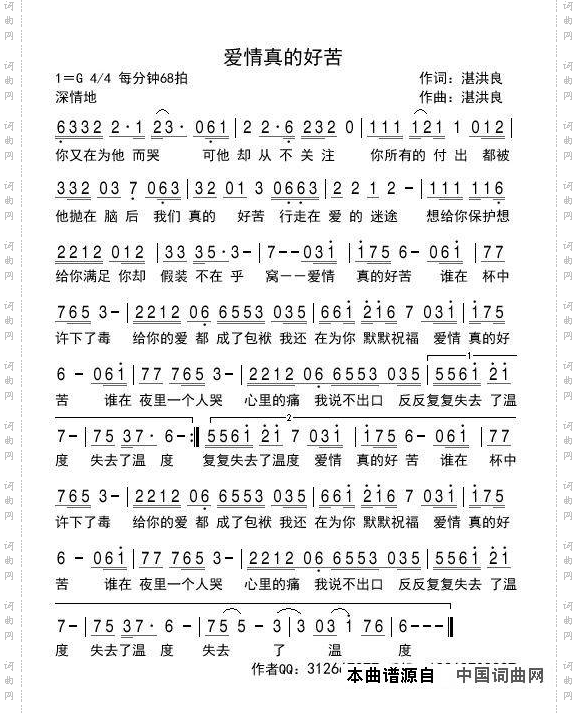 爱情真的好苦
1=G 4/4 每分钟68拍 作词：湛洪良
深情地 作曲：湛洪良
6332 2·1 23· 061|2 2 2·6 232 0|111 121 1 012|
你又在为他 而哭 可他 却从 不 关注 你所有的 付 出 都被
332 03 7 063|32 01 3 0663|2 2 1 2 -|111 116
他抛在 脑 后 我们 真的 好苦 行走在 爱 的 迷途 想给你保护想
2212 012|33 35·3-|7--031|175 6- 061|77
给你满足 你却 假装 不在 乎 窝——爱情 真的好苦 谁在 杯中
765 3-|2212 06 6553 035|661 216 7 031|175
许下了毒 给你的爱 都 成了包袱 我还 在为你 默默祝福 爱情 真的好
6 - 061|77 765 3-|2212 06 6553 035|5561 21
苦 谁在 夜里一个人哭 心里的痛 我说不出口 反反复复失去 了温
1
7-|75 37· 6-:||5561 21 7 031|175 6- 061|77
2
度 失去了温 度 复复失去了温度 爱情 真的好 苦 谁在 杯中
765 3-|2212 06 6553 035|661 216 7 031|175
许下了毒 给你的爱 都 成了包袱 我还 在为你 默默祝福 爱情 真的好
6 - 061|77 765 3-|2212 06 6553 035|5561 21
苦 谁在 夜里一个人哭 心里的痛 我说不出口 反反复复失去 了温
7-|75 37· 6-|75 5 - 3|3 03 1 76|6---||
度 失去了温 度 失去 了 温 度
作者QQ：3126
本曲谱源自 中国词曲网
词曲网